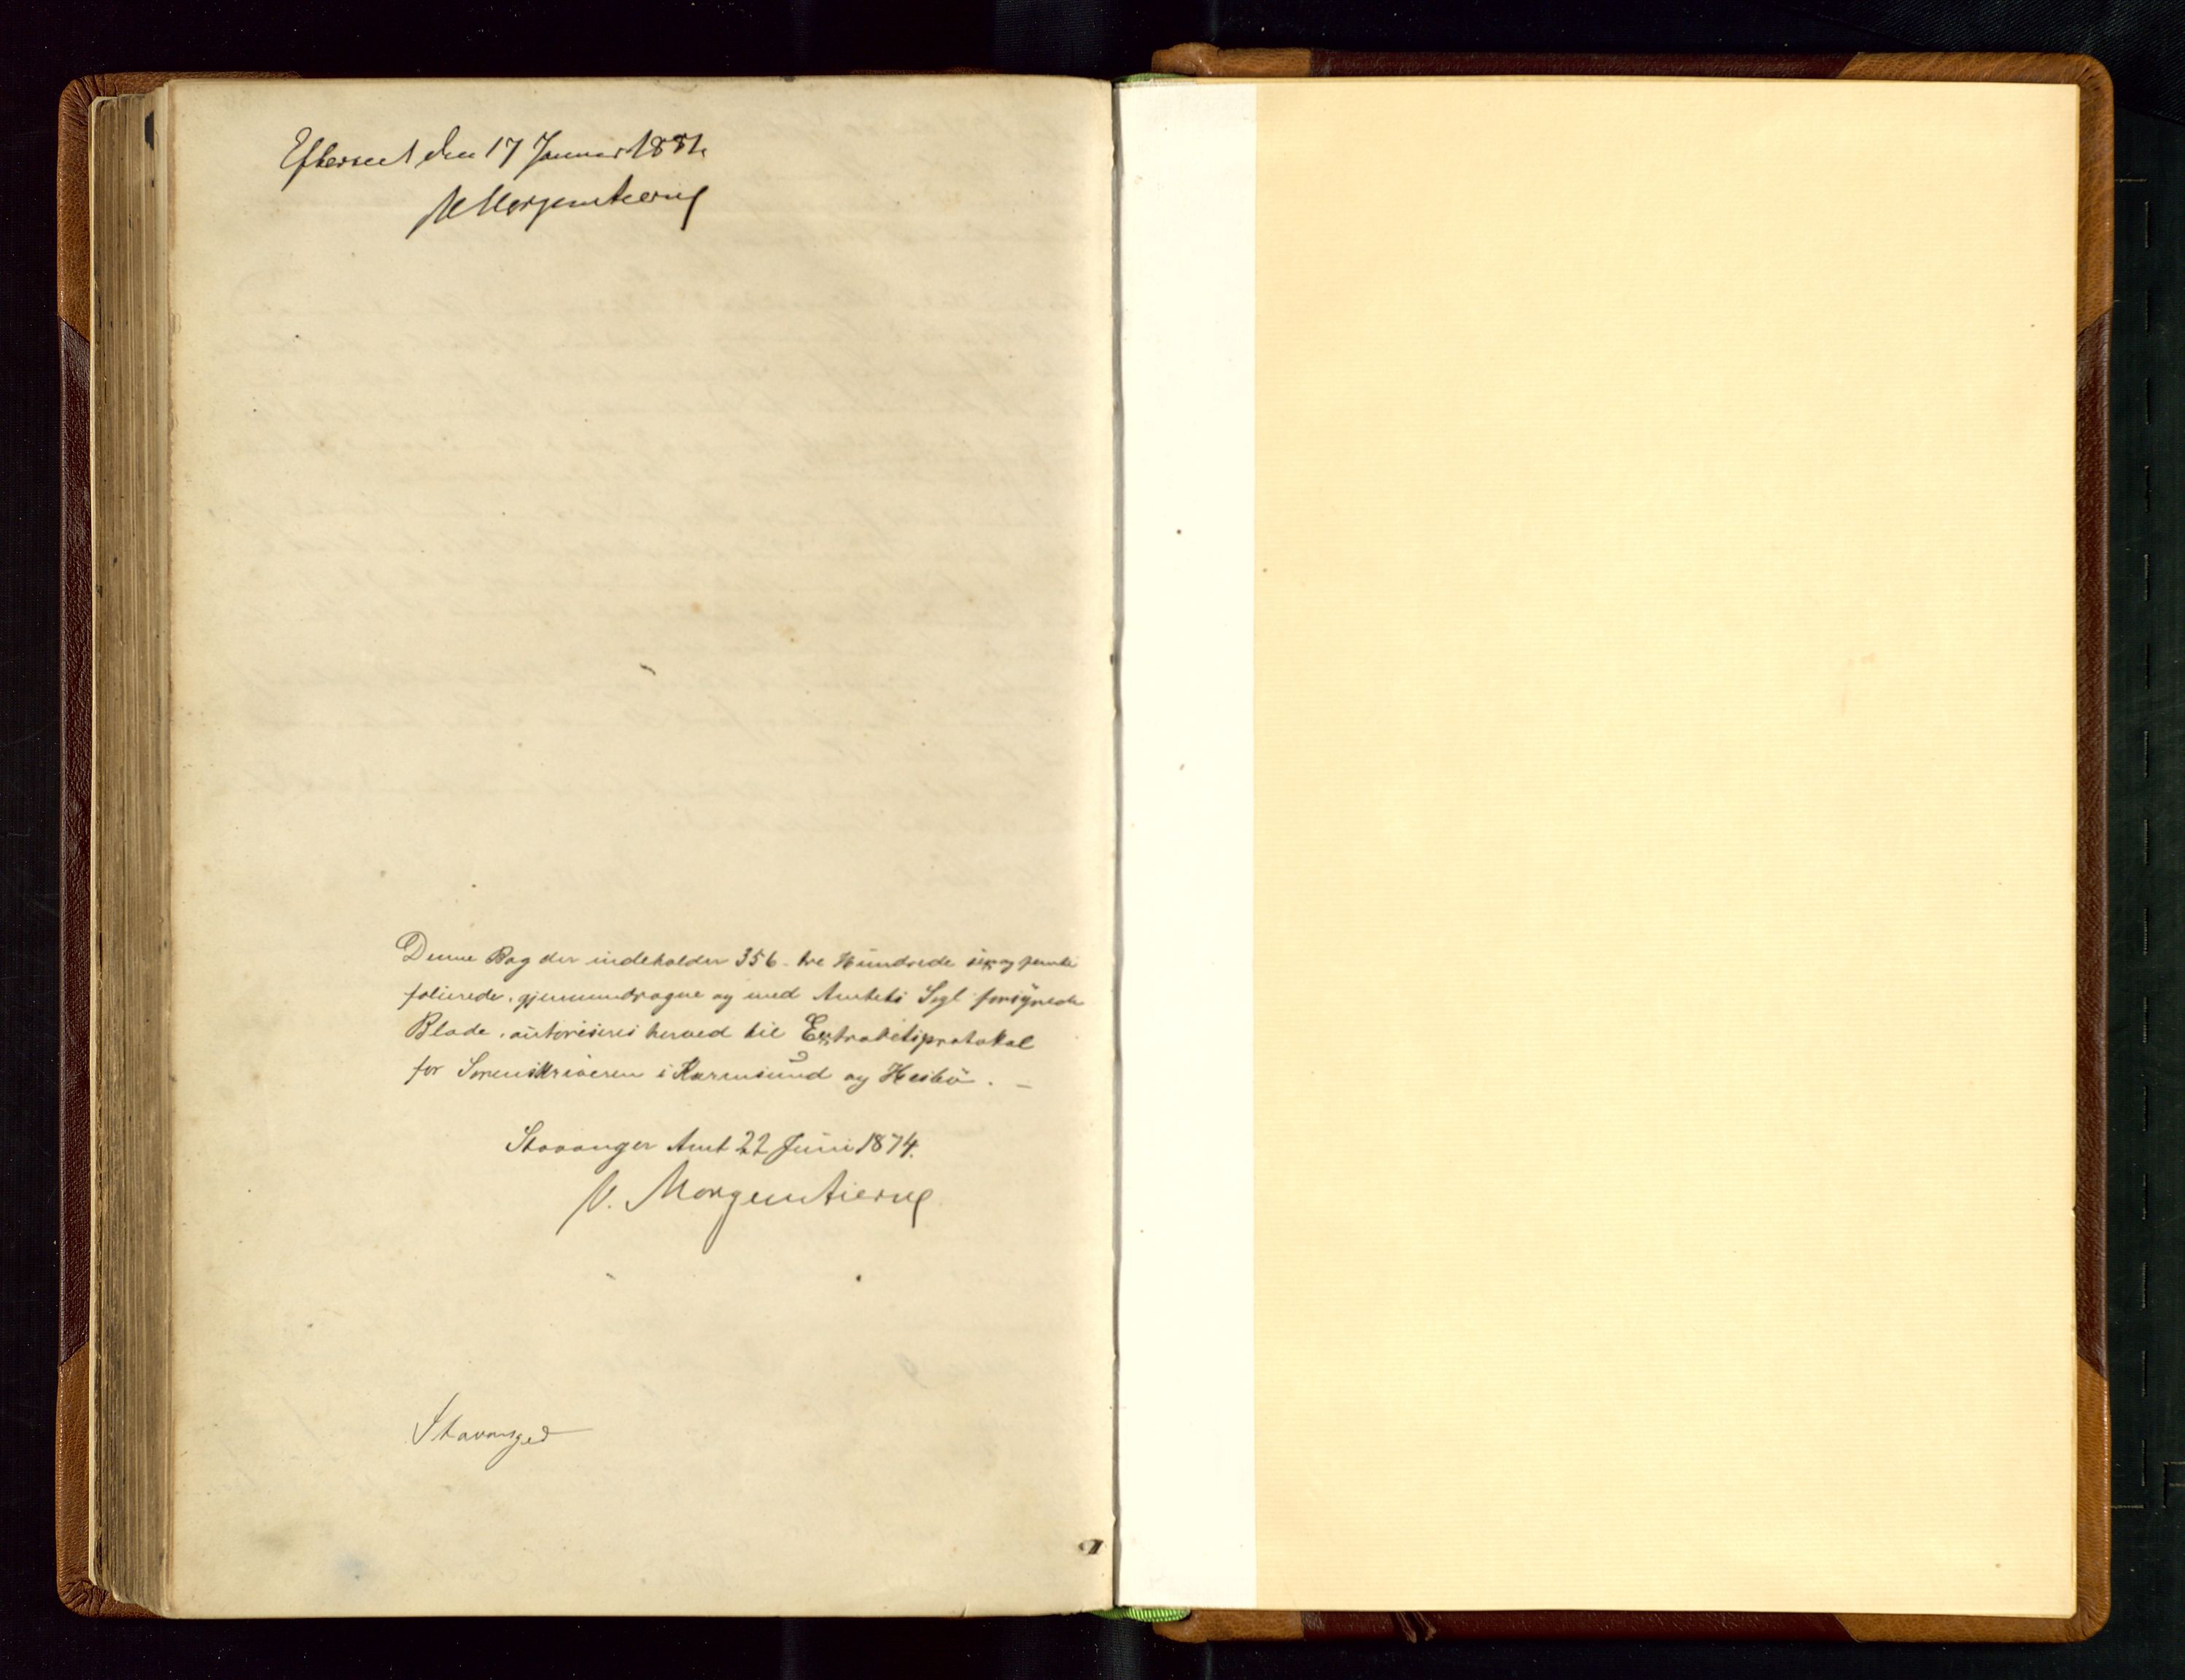 Efterseet den 17 Januar 1881.
V Morgenstierne
Denne Bog der indeholder 356 - tre Hundrede sex og femti
folierede, gjennemdragne og med Amtets Segl forsynede
Blade, autoriseres herved til Extraretsprotokol
for Sorenskriveren i Karmsund og Hesbö. -
Stavanger Amt 22 Juni 1874.
V. Morgenstierne
Stavanger